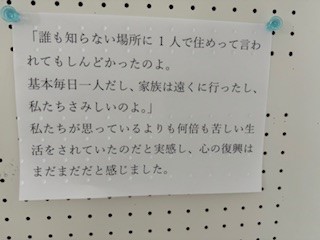 「誰も知らない場所に１人で住めって言わ
れてもしんどかったのよ。
基本毎日一人だし、家族は遠くに行ったし、
私たちさみしいのよ。」
私たちが思っているよりも何倍も苦しい生
活をされていたのだと実感し、心の復興は
まだまだだと感じました。